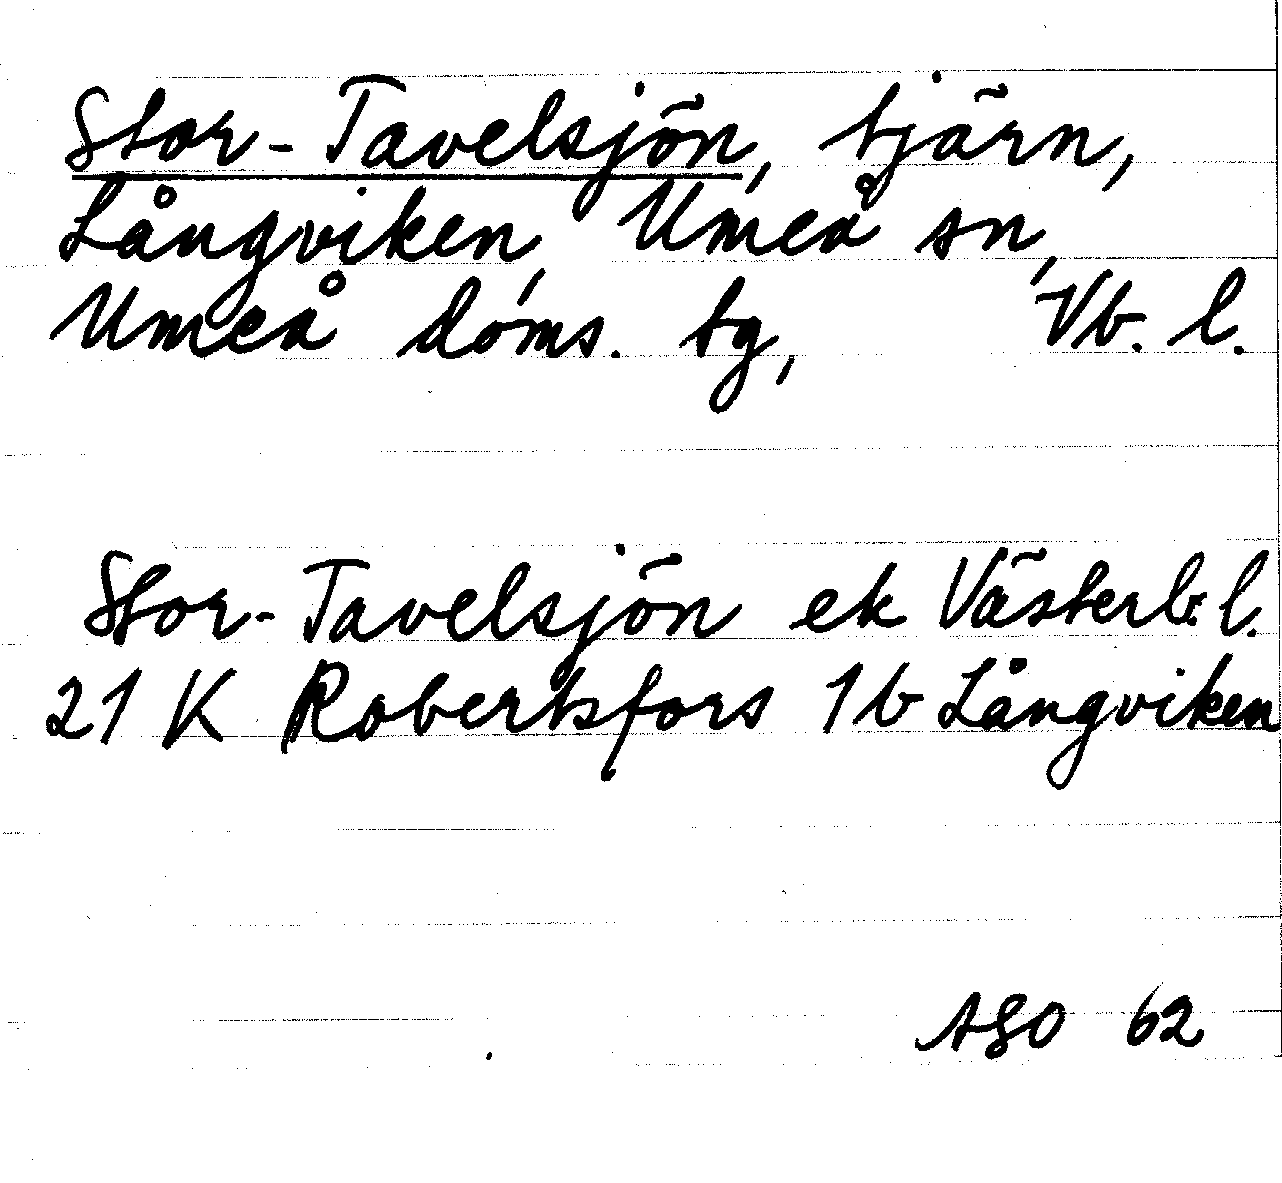 Stor-Tavelsjön, tjärn,
Långviken, Umeå sn,
Umeå doms. tg, Vb. l.
Stor-Tavelsjön ek Västerb. l.
21 K Robertsfors 1 b Långviken
ASO 62